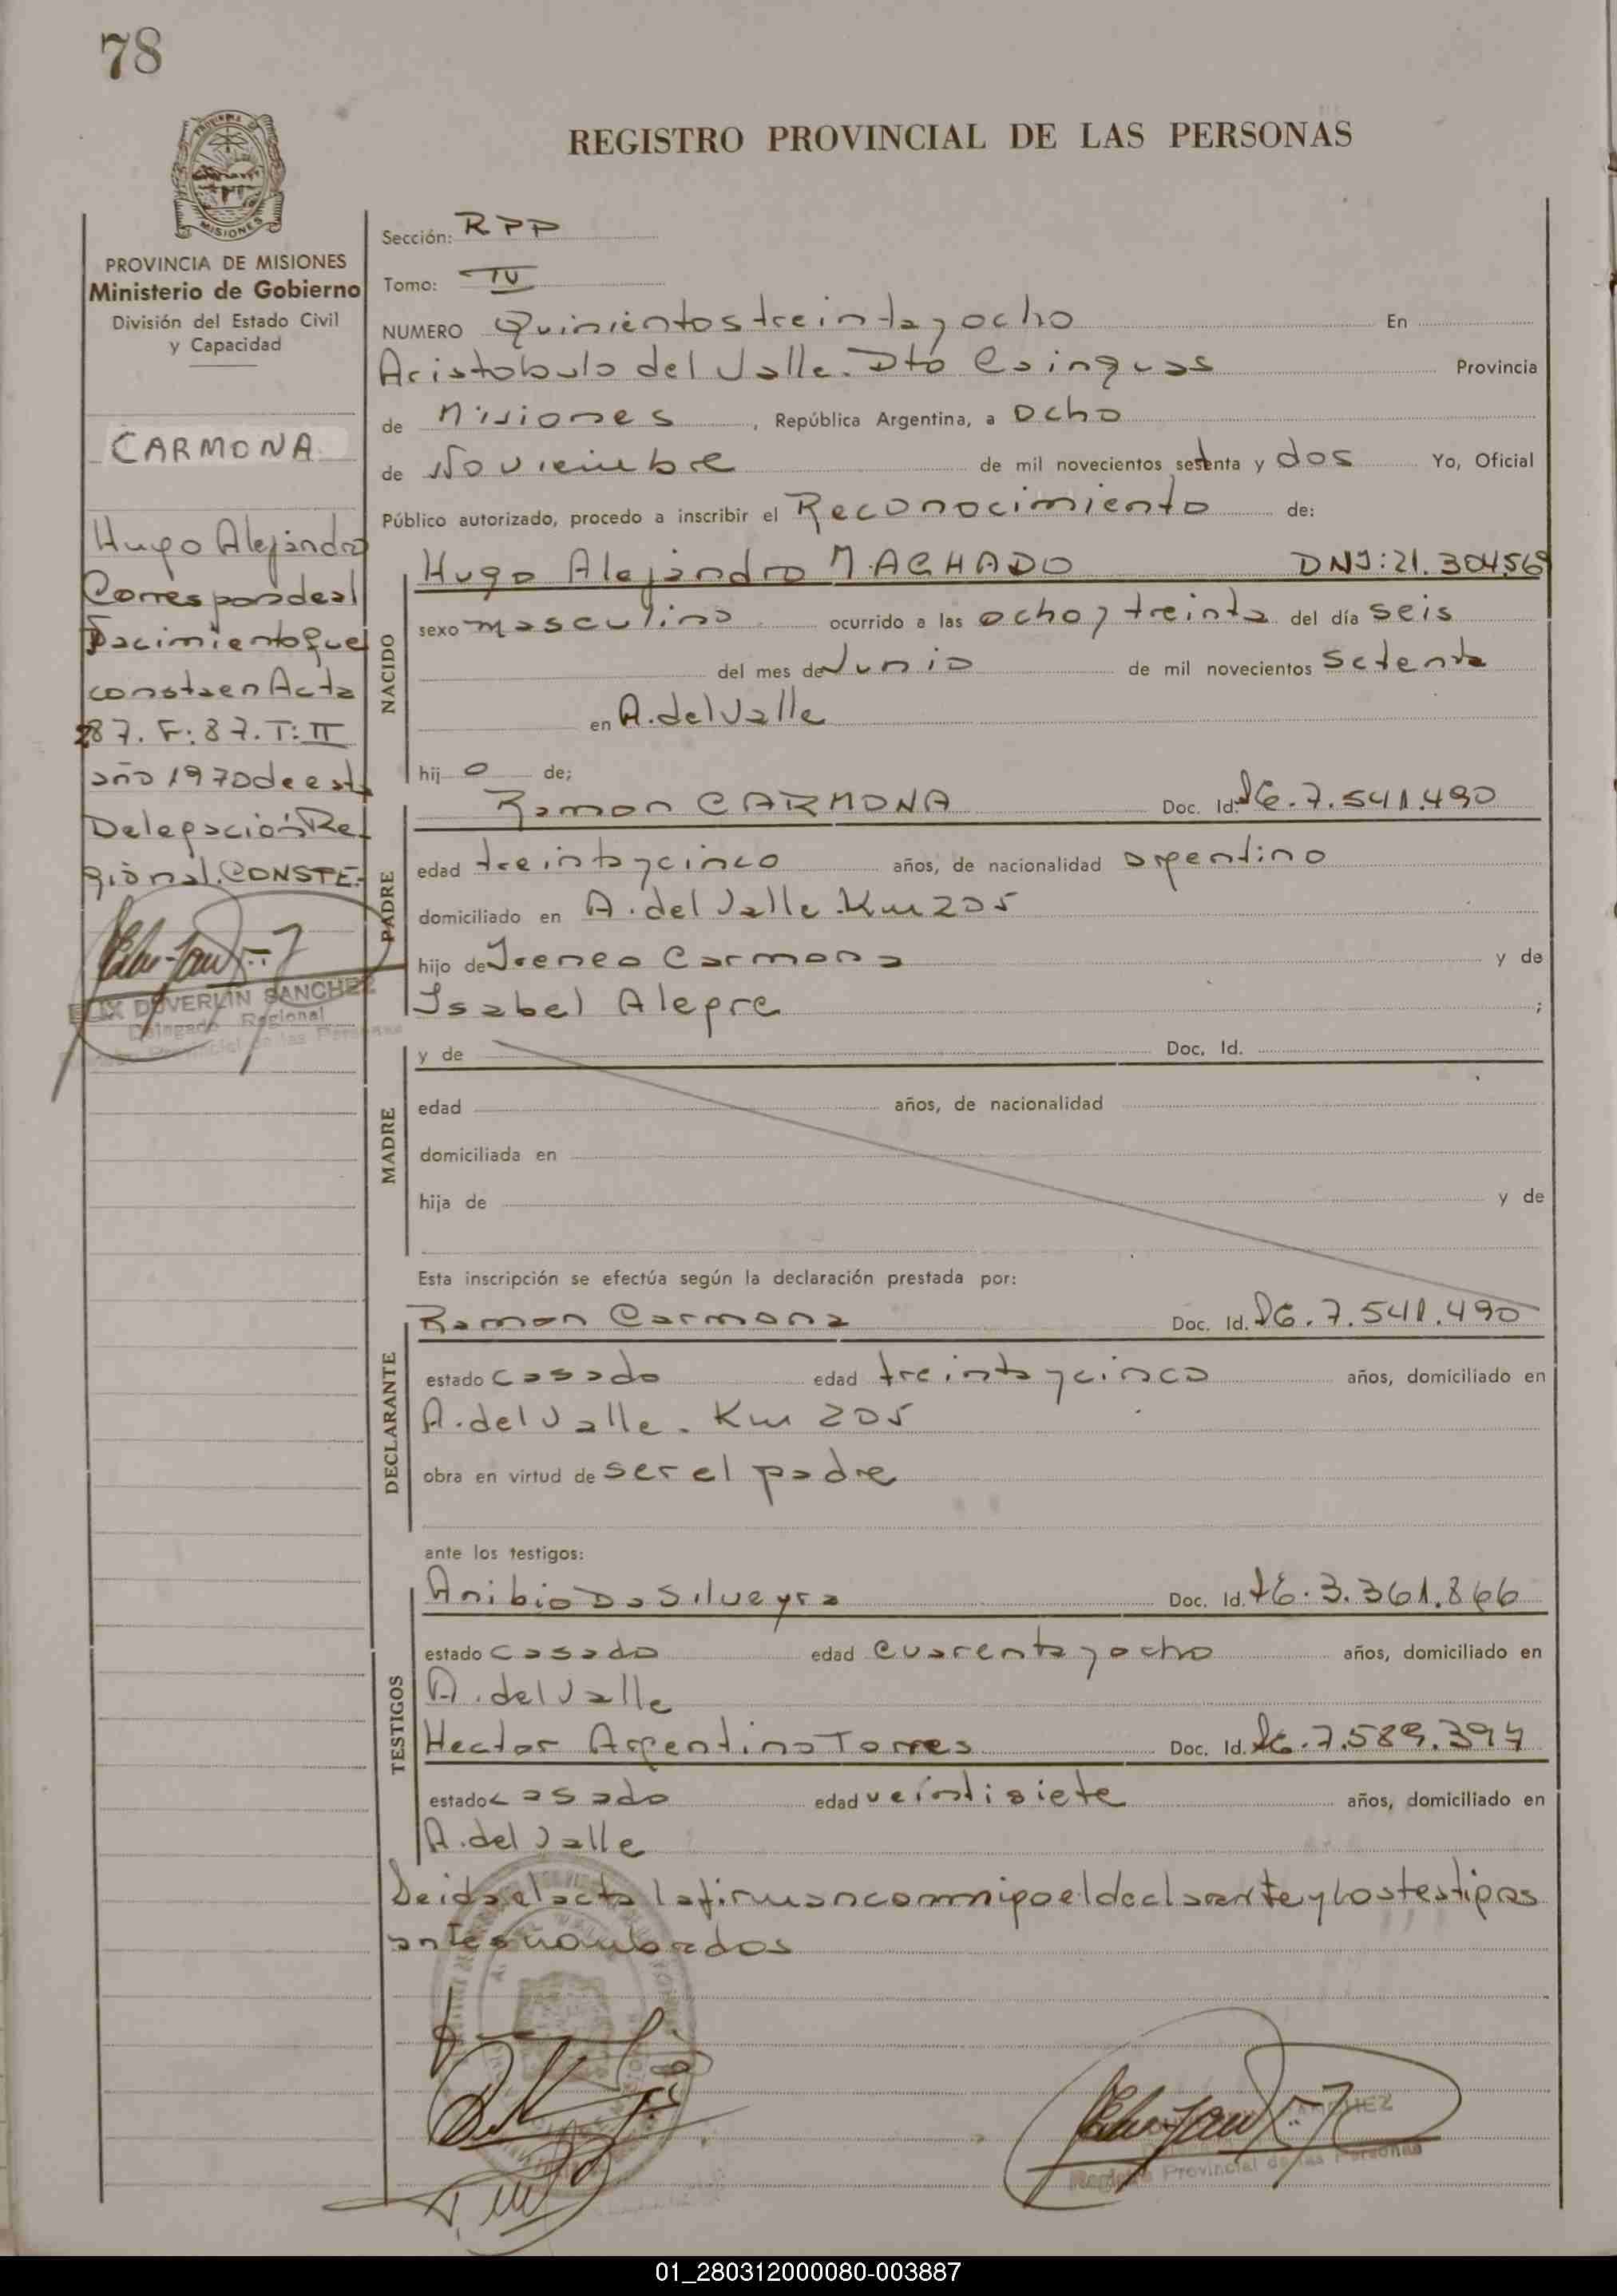 78
REGISTRO PROVINCIAL DE LAS PERSONAS
MISIONES
PROVINCIA DE MISIONES
Ministerio de Gobierno
División del Estado Civil
y Capacidad
CARMONA
Hugo Alejandro
Corresponde al
Nacimiento que
consta en Acta
287. F: 87. T: II
año 1970 de esta
Delegación Re-
gional. CONSTE.
DUVERLIN SANCHEZ
Delegado Regional
Provincial de las Personas
Sección: RPP
Tomo: IV
NUMERO Quinientos treinta y ocho En
Aristobulo del Valle. Dto Cainguas Provincia
de Misiones, República Argentina, a Ocho
de Noviembre de mil novecientos setenta y dos Yo, Oficial
Público autorizado, procedo a inscribir el Reconocimiento de:
NACIDO
Hugo Alejandro MACHADO DNI: 21.304.569
sexo masculino ocurrido a las ocho y treinta del día seis
del mes de Junio de mil novecientos setenta
en A. del Valle
hij o de;
PADRE
Ramon CARMONA Doc. Id. 7.541.490
edad treinta y cinco años, de nacionalidad argentino
domiciliado en A. del Valle. Km 205
hijo de Ireneo Carmona y de
Isabel Alegre ;
MADRE
y de Doc. Id.
edad años, de nacionalidad
domiciliada en
hija de y de
Esta inscripción se efectúa según la declaración prestada por:
DECLARANTE
Ramon Carmona Doc. Id. 7.541.490
estado casado edad treinta y cinco años, domiciliado en
A. del Valle. Km 205
obra en virtud de ser el padre
ante los testigos:
TESTIGOS
Anibio Da Silveyra Doc. Id. 3.361.866
estado casado edad cuarenta y ocho años, domiciliado en
A. del Valle
Hector Argentino Torres Doc. Id. 7.589.394
estado casado edad veintisiete años, domiciliado en
A. del Valle
Leida el acta la firman conmigo el declarante y los testigos
antes nombrados
Registro Provincial de las Personas
01_280312000080-003887